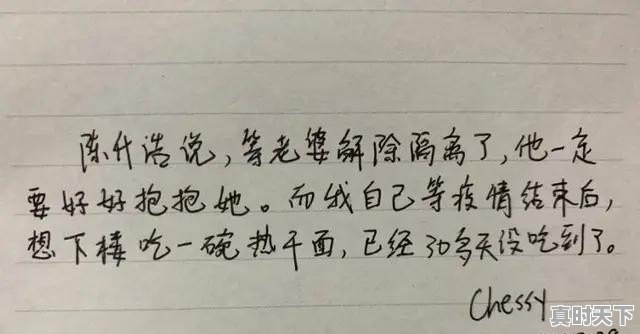 陈什浩说，等老婆解除隔离了，他一定
要好好抱抱她。而我自己等疫情结束后，
想下楼吃一碗热干面，已经30多天没吃到了。
Chessy
真时天下